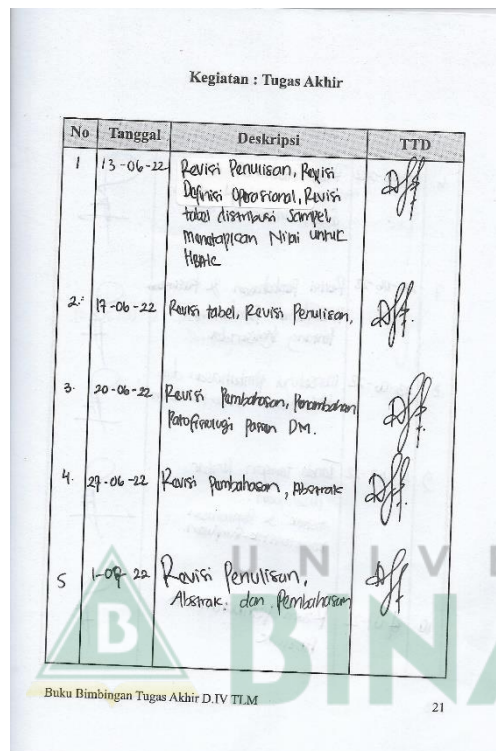 Kegiatan : Tugas Akhir
No Tanggal Deskripsi TTD
1 13-06-22 Revisi Penulisan, Revisi
Definisi Operasional, Revisi
tabel distribusi Sampel,
Menetapkan Nilai untuk
HbA1c
2. 17-06-22 Revisi tabel, Revisi Penulisan,
3. 20-06-22 Revisi Pembahasan, Penambahan
Patofisiologi Pasien DM.
4. 27-06-22 Revisi Pembahasan, Abstrak
5 22 Revisi Penulisan,
Abstrak. dan Pembahasan
UNIV
B BINA
Buku Bimbingan Tugas Akhir D.IV TLM
21